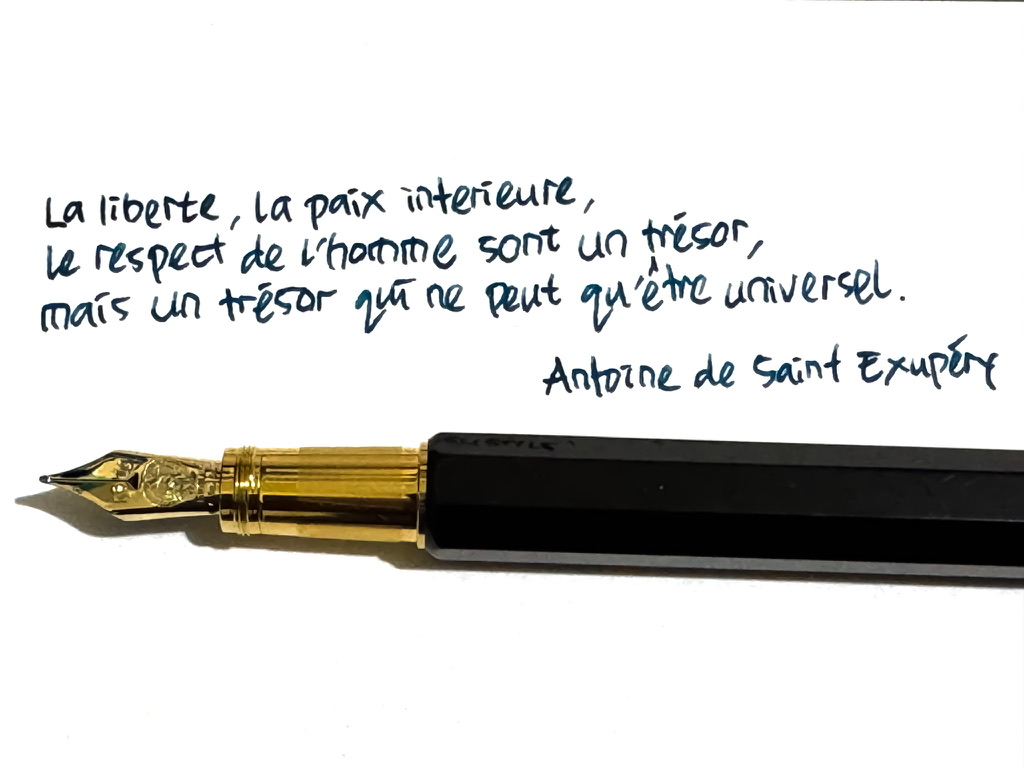 La liberte, la paix interieure,
le respect de l'homme sont un trésor,
mais un trésor qui ne peut qu'être universel.
Antoine de Saint Exupéry